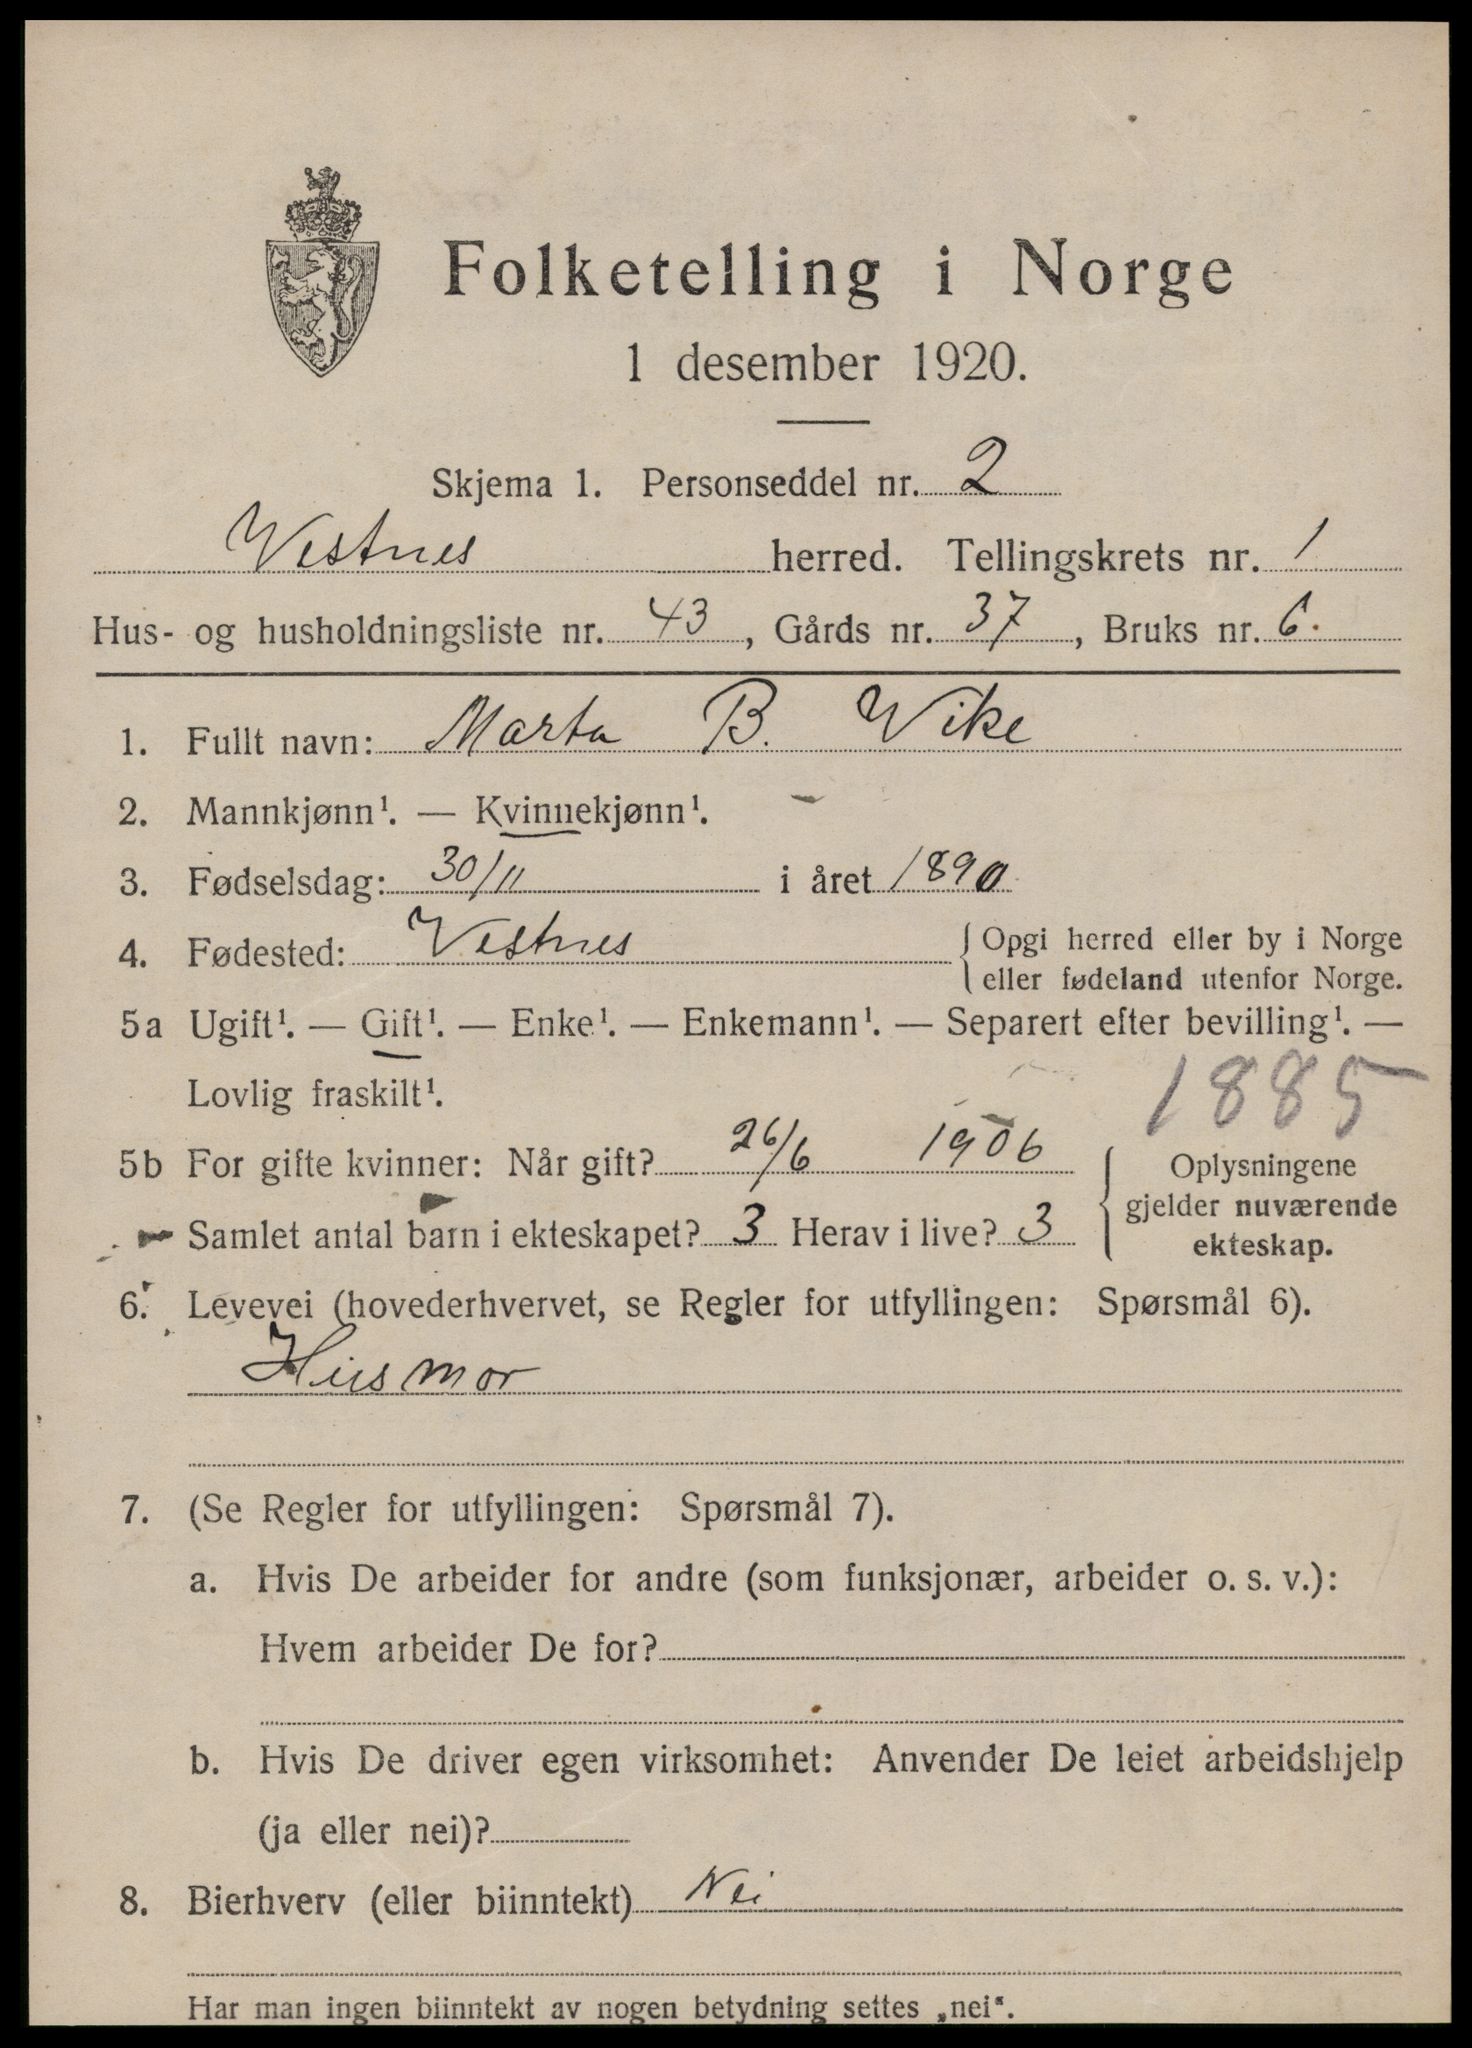 Folketelling i Norge
1 desember 1920.
Skjema 1. Personseddel nr. 2
Vestnes herred. Tellingskrets nr. 1
Hus- og husholdningsliste nr. 43, Gårds nr. 37, Bruks nr. 6.
1. Fullt navn: Marta B. Vike
2. Mannkjønn¹. — Kvinnekjønn¹.
3. Fødselsdag: 30/11 i året 1890
4. Fødested: Vestnes { Opgi herred eller by i Norge
eller fødeland utenfor Norge.
5a Ugift¹. — Gift¹. — Enke¹. — Enkemann¹. — Separert efter bevilling¹. —
Lovlig fraskilt¹.
1885
5b For gifte kvinner: Når gift? 26/6 1906
Samlet antal barn i ekteskapet? 3 Herav i live? 3
{ Oplysningene
gjelder nuværende
ekteskap.
6. Levevei (hovederhvervet, se Regler for utfyllingen: Spørsmål 6).
Husmor
7. (Se Regler for utfyllingen: Spørsmål 7).
a. Hvis De arbeider for andre (som funksjonær, arbeider o. s. v.):
Hvem arbeider De for?
b. Hvis De driver egen virksomhet: Anvender De leiet arbeidshjelp
(ja eller nei)?
8. Bierhverv (eller biinntekt) Nei
Har man ingen biinntekt av nogen betydning settes „nei“.